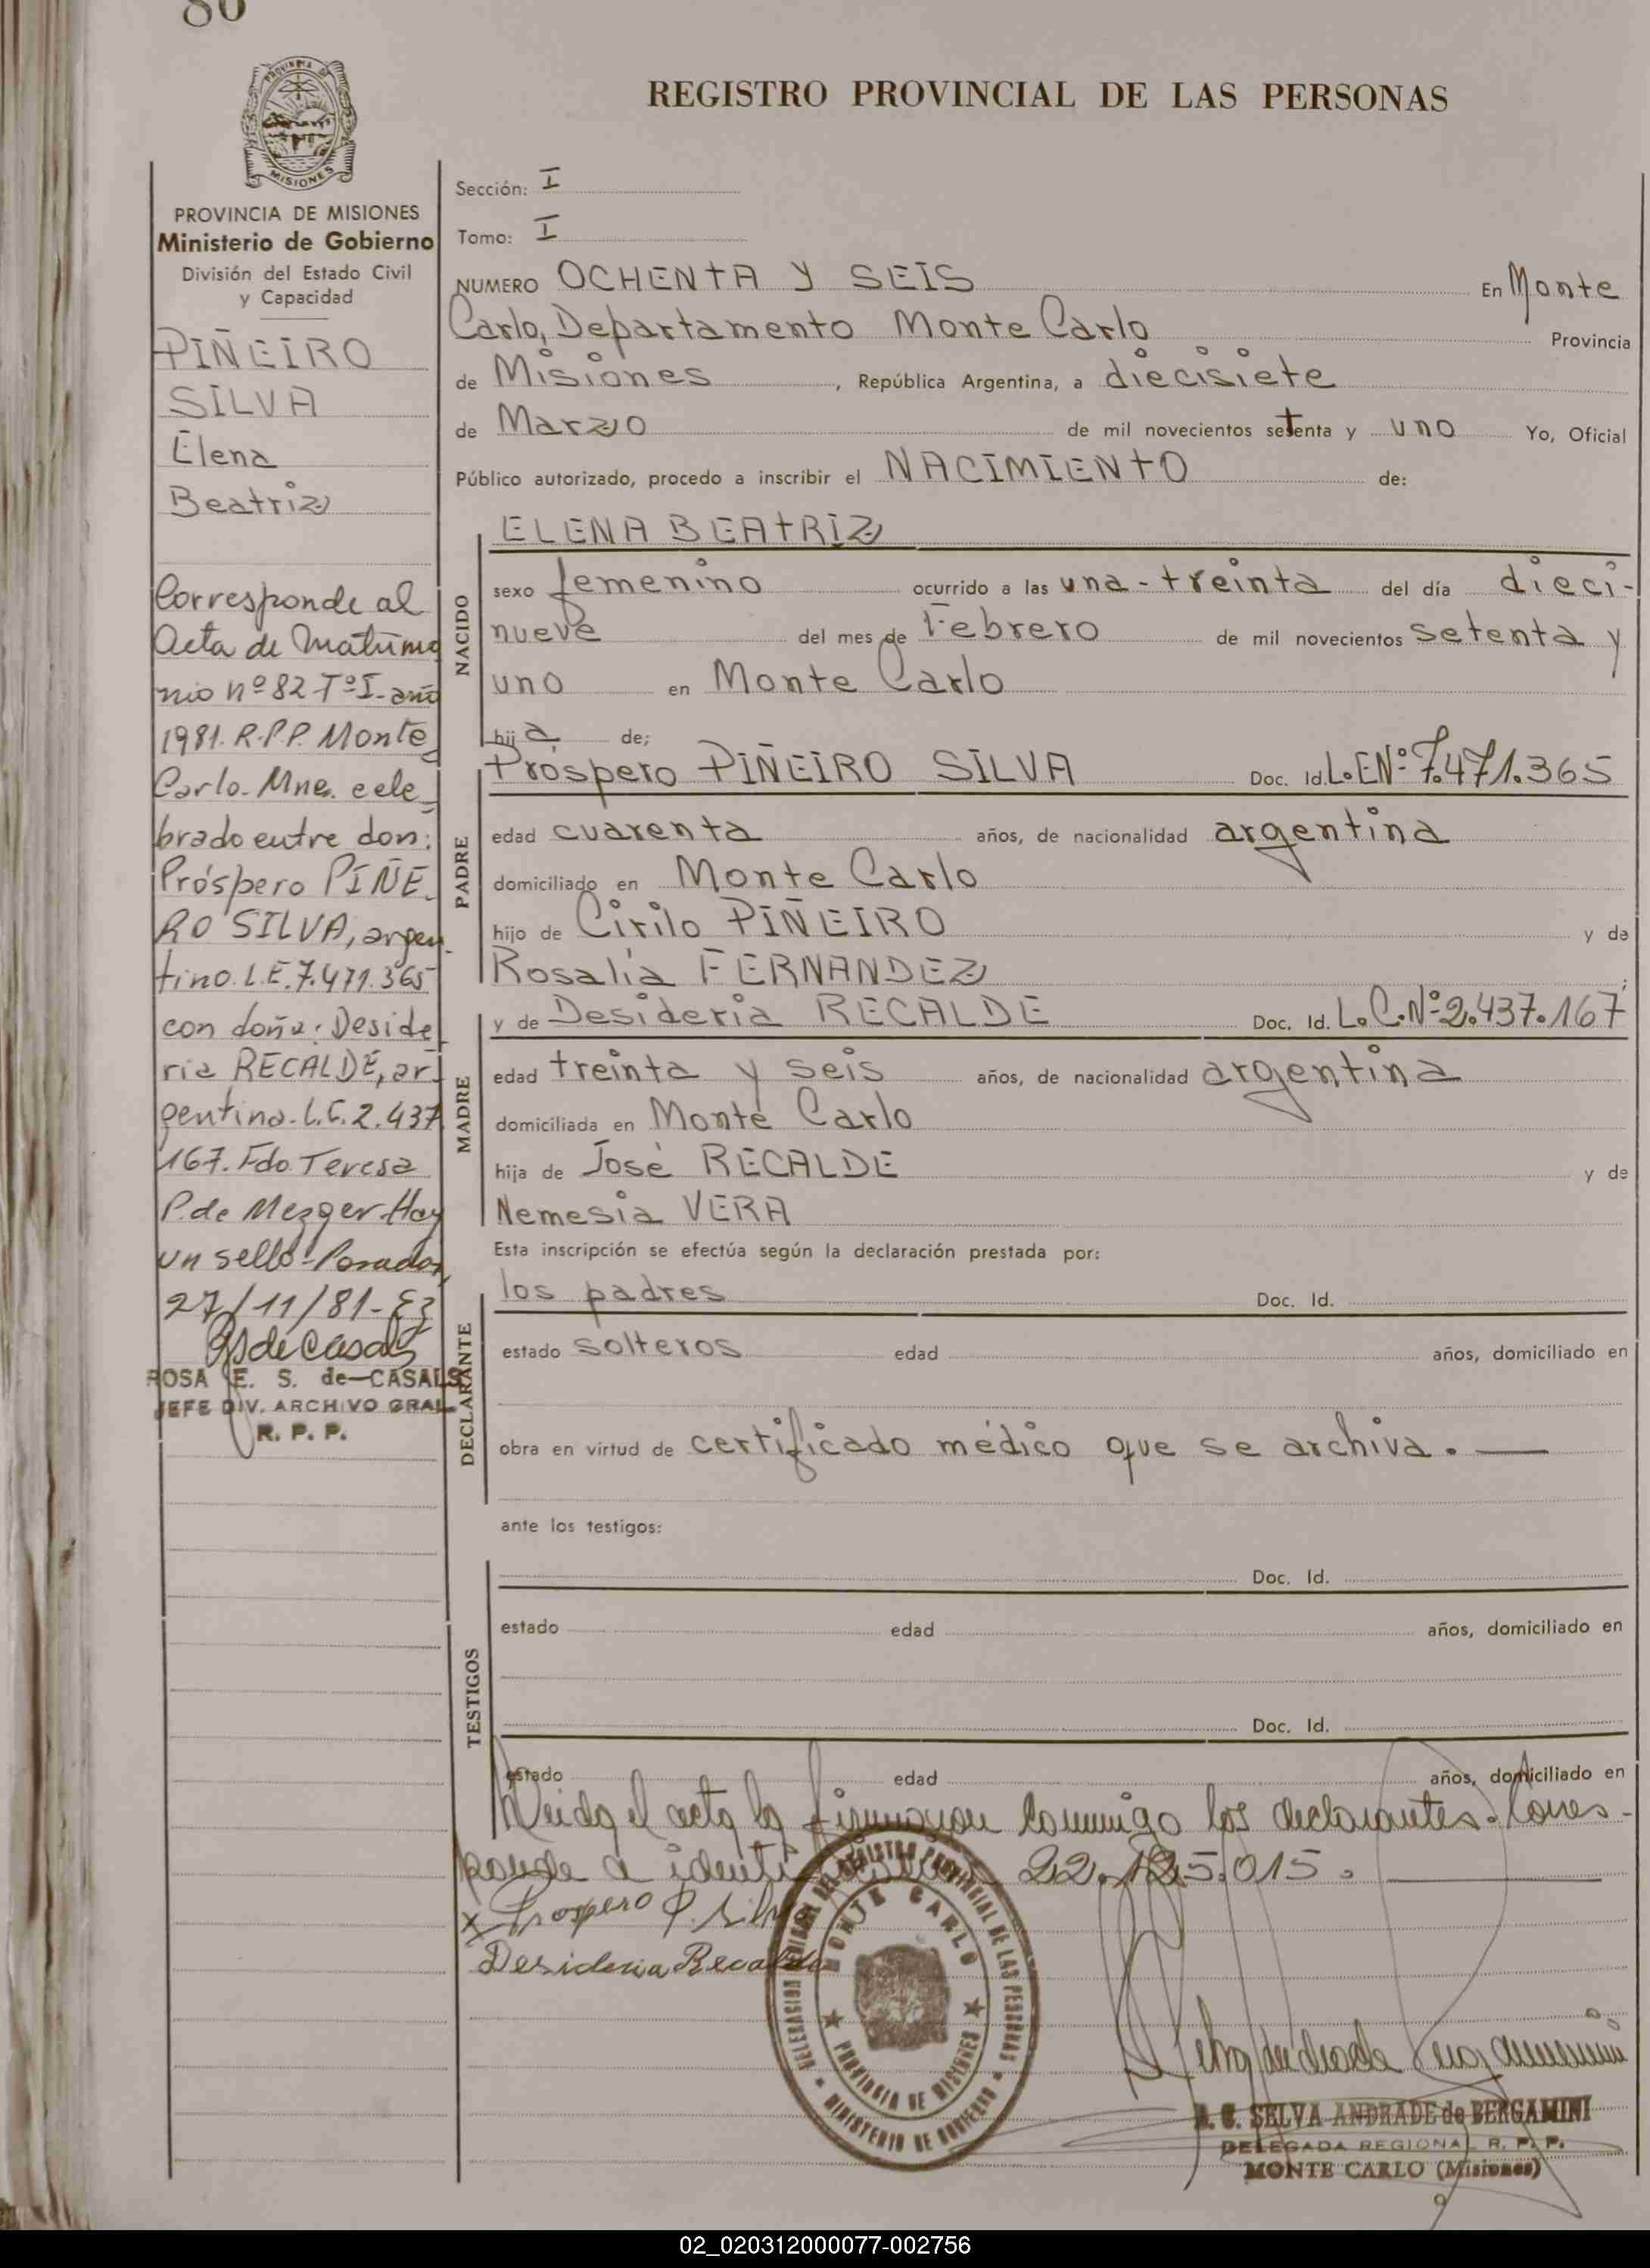 86
REGISTRO PROVINCIAL DE LAS PERSONAS
MISIONES
PROVINCIA DE MISIONES
Ministerio de Gobierno
División del Estado Civil
y Capacidad
PIÑEIRO
SILVA
Elena
Beatriz
Corresponde al
Acta de Matrimo
nio nº 82 Tº I- año
1981. R.P.P. Monte
Carlo- Mnes. cele
brado entre don:
Próspero PIÑE
RO SILVA, argen-
tino. L.E. 7.471.365
con doña: Deside
ria RECALDE, ar-
gentina. L.C. 2.437
167. Fdo. Teresa
P. de Mezger-Hay
un sello- Posadas,
27/11/81-
ROSA E. S. de CASALS
JEFE DIV. ARCHIVO GRAL.
R. P. P.
Sección: I
Tomo: I
NUMERO OCHENTA Y SEIS En Monte
Carlo, Departamento Monte Carlo Provincia
de Misiones, República Argentina, a diecisiete
de Marzo de mil novecientos setenta y uno Yo, Oficial
Público autorizado, procedo a inscribir el NACIMIENTO de:
NACIDO
ELENA BEATRIZ
sexo femenino ocurrido a las una-treinta del día dieci-
nueve del mes de Febrero de mil novecientos setenta y
uno en Monte Carlo
hija de;
PADRE
Próspero PIÑEIRO SILVA Doc. Id. L.E Nº 7.471.365
edad cuarenta años, de nacionalidad argentina
domiciliado en Monte Carlo
hijo de Cirilo PIÑEIRO y de
Rosalía FERNANDEZ ;
MADRE
y de Desideria RECALDE Doc. Id. L.C. Nº 2.437.167
edad treinta y seis años, de nacionalidad argentina
domiciliada en Monte Carlo
hija de José RECALDE y de
Nemesia VERA
Esta inscripción se efectúa según la declaración prestada por:
DECLARANTE
los padres Doc. Id.
estado solteros edad años, domiciliado en
obra en virtud de certificado médico que se archiva.
ante los testigos:
TESTIGOS
Doc. Id.
estado edad años, domiciliado en
Doc. Id.
estado edad años, domiciliado en
Leida el acta la firmaron conmigo los declarantes. Corres-
ponde a 22.125.015.
x Prospero P. Silva
Desideria Recalde
REGISTRO PROVINCIAL DE LAS PERSONAS
MONTE CARLO
PROVINCIA DE MISIONES
MINISTERIO DE GOBIERNO
SELVA ANDRADE de BERGAMINI
DELEGADA REGIONAL R. P. P.
MONTE CARLO (Misiones)
02_020312000077-002756